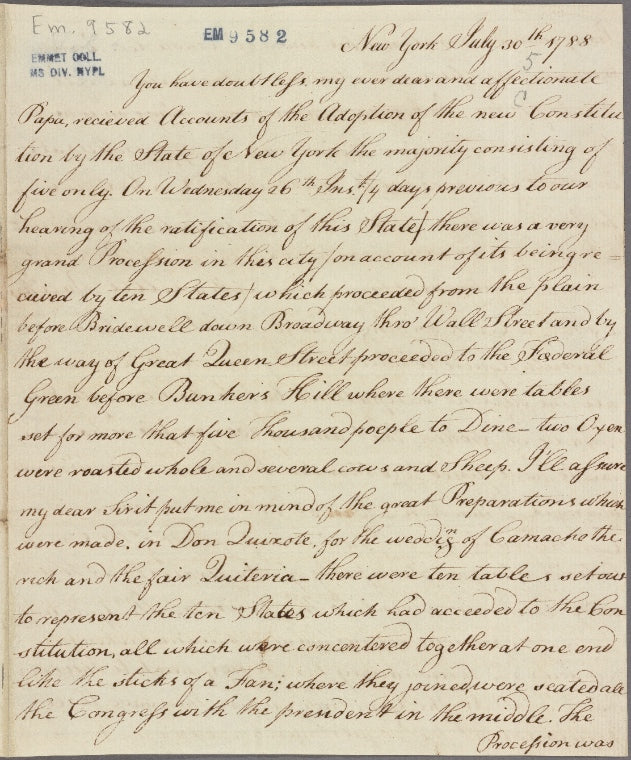 Em. 9582
EM 9 5 8 2
EMMET COLL.
MS DIV. NYPL
New York July 30th 1788
5
C
You have doubtless, my ever dear and affectionate
Papa, recieved Accounts of the Adoption of the new Constitu
tion by the State of New York the majority consisting of
five only. On Wednesday 26th Inst. (4 days previous to our
hearing of the ratification of this State) there was a very
grand Procession in this city (on account of its being re=
cieved by ten States) which proceeded from the plain
before Bridewell down Broadway thro' Wall Street and by
the way of Great Queen Street proceeded to the Fæderal
Green before Bunkers Hill where there were tables
set for more that five thousand poeple to Dine – two Oxen
were roasted whole and several cows and Sheep. I'll assure
my dear Sir it put me in mind of the great Preparations which
were made. in Don Quixote, for the wedding of Camacho the
rich and the fair Quiteria – there were ten tables set out
to represent the ten States which had acceeded to the Con
stitution, all which were concentered together at one end
like the sticks of a Fan; where they joined, were seated all
the Congress with the president in the middle. The
Procession was